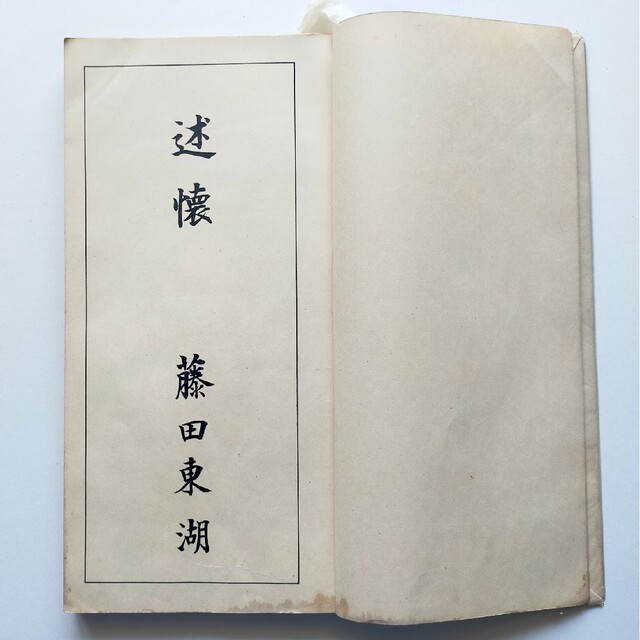 述懐　藤田東湖